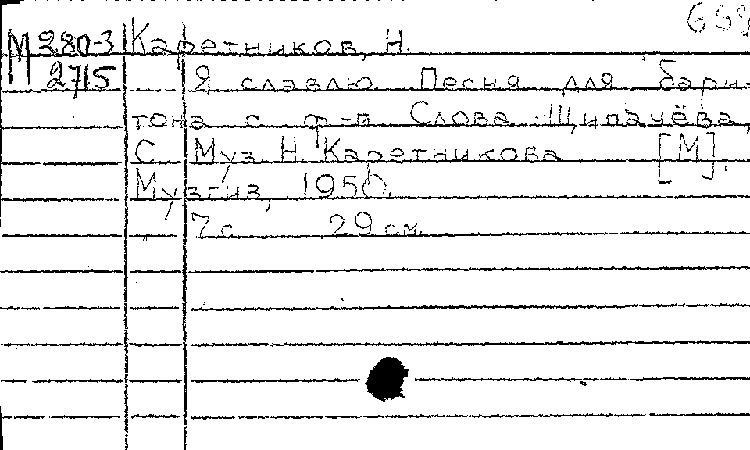 М 280-3 Каретников, Н.
2715 Я славлю Песня для бари-
тона с ф-п Слова Щипачёва,
С. Муз Н Каретникова [М].
Музгиз, 1950.
7 с. 29 см.